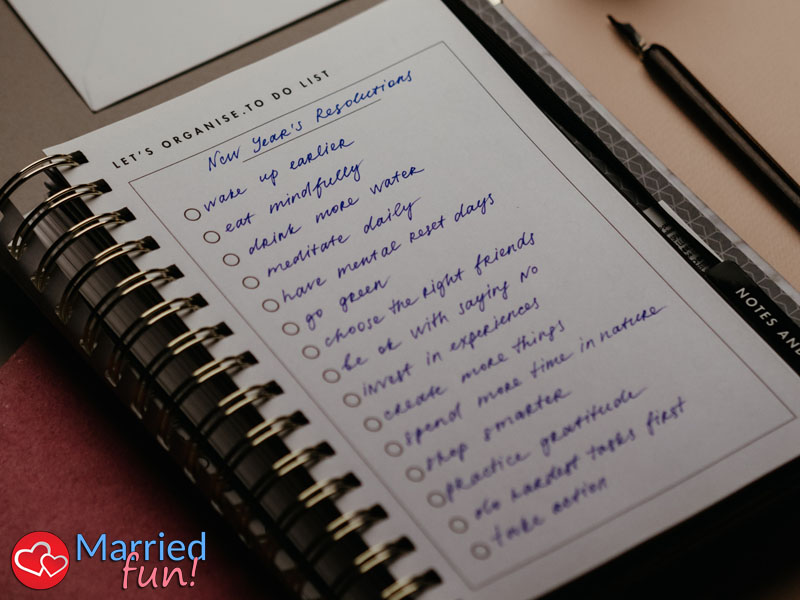 LET'S ORGANISE.TO DO LIST
New Year's Resolutions
wake up earlier
eat mindfully
drink more water
meditate daily
have mental reset days
go green
choose the right friends
be ok with saying NO
invest in experiences
create more things
spend more time in nature
shop smarter
practice gratitude
do hardest tasks first
take action
NOTES AND
Married
fun!